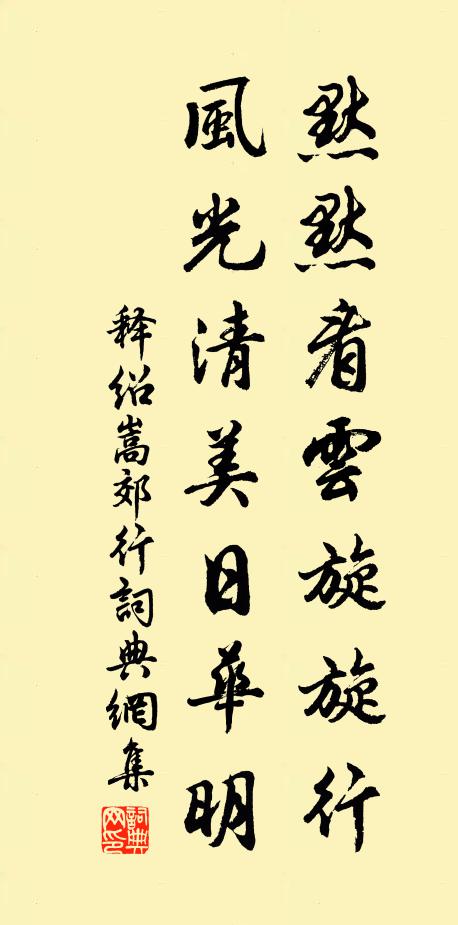 默默看雲旋旋行
風光清美日華明
释绍嵩郊行詞典網集
詞典網印